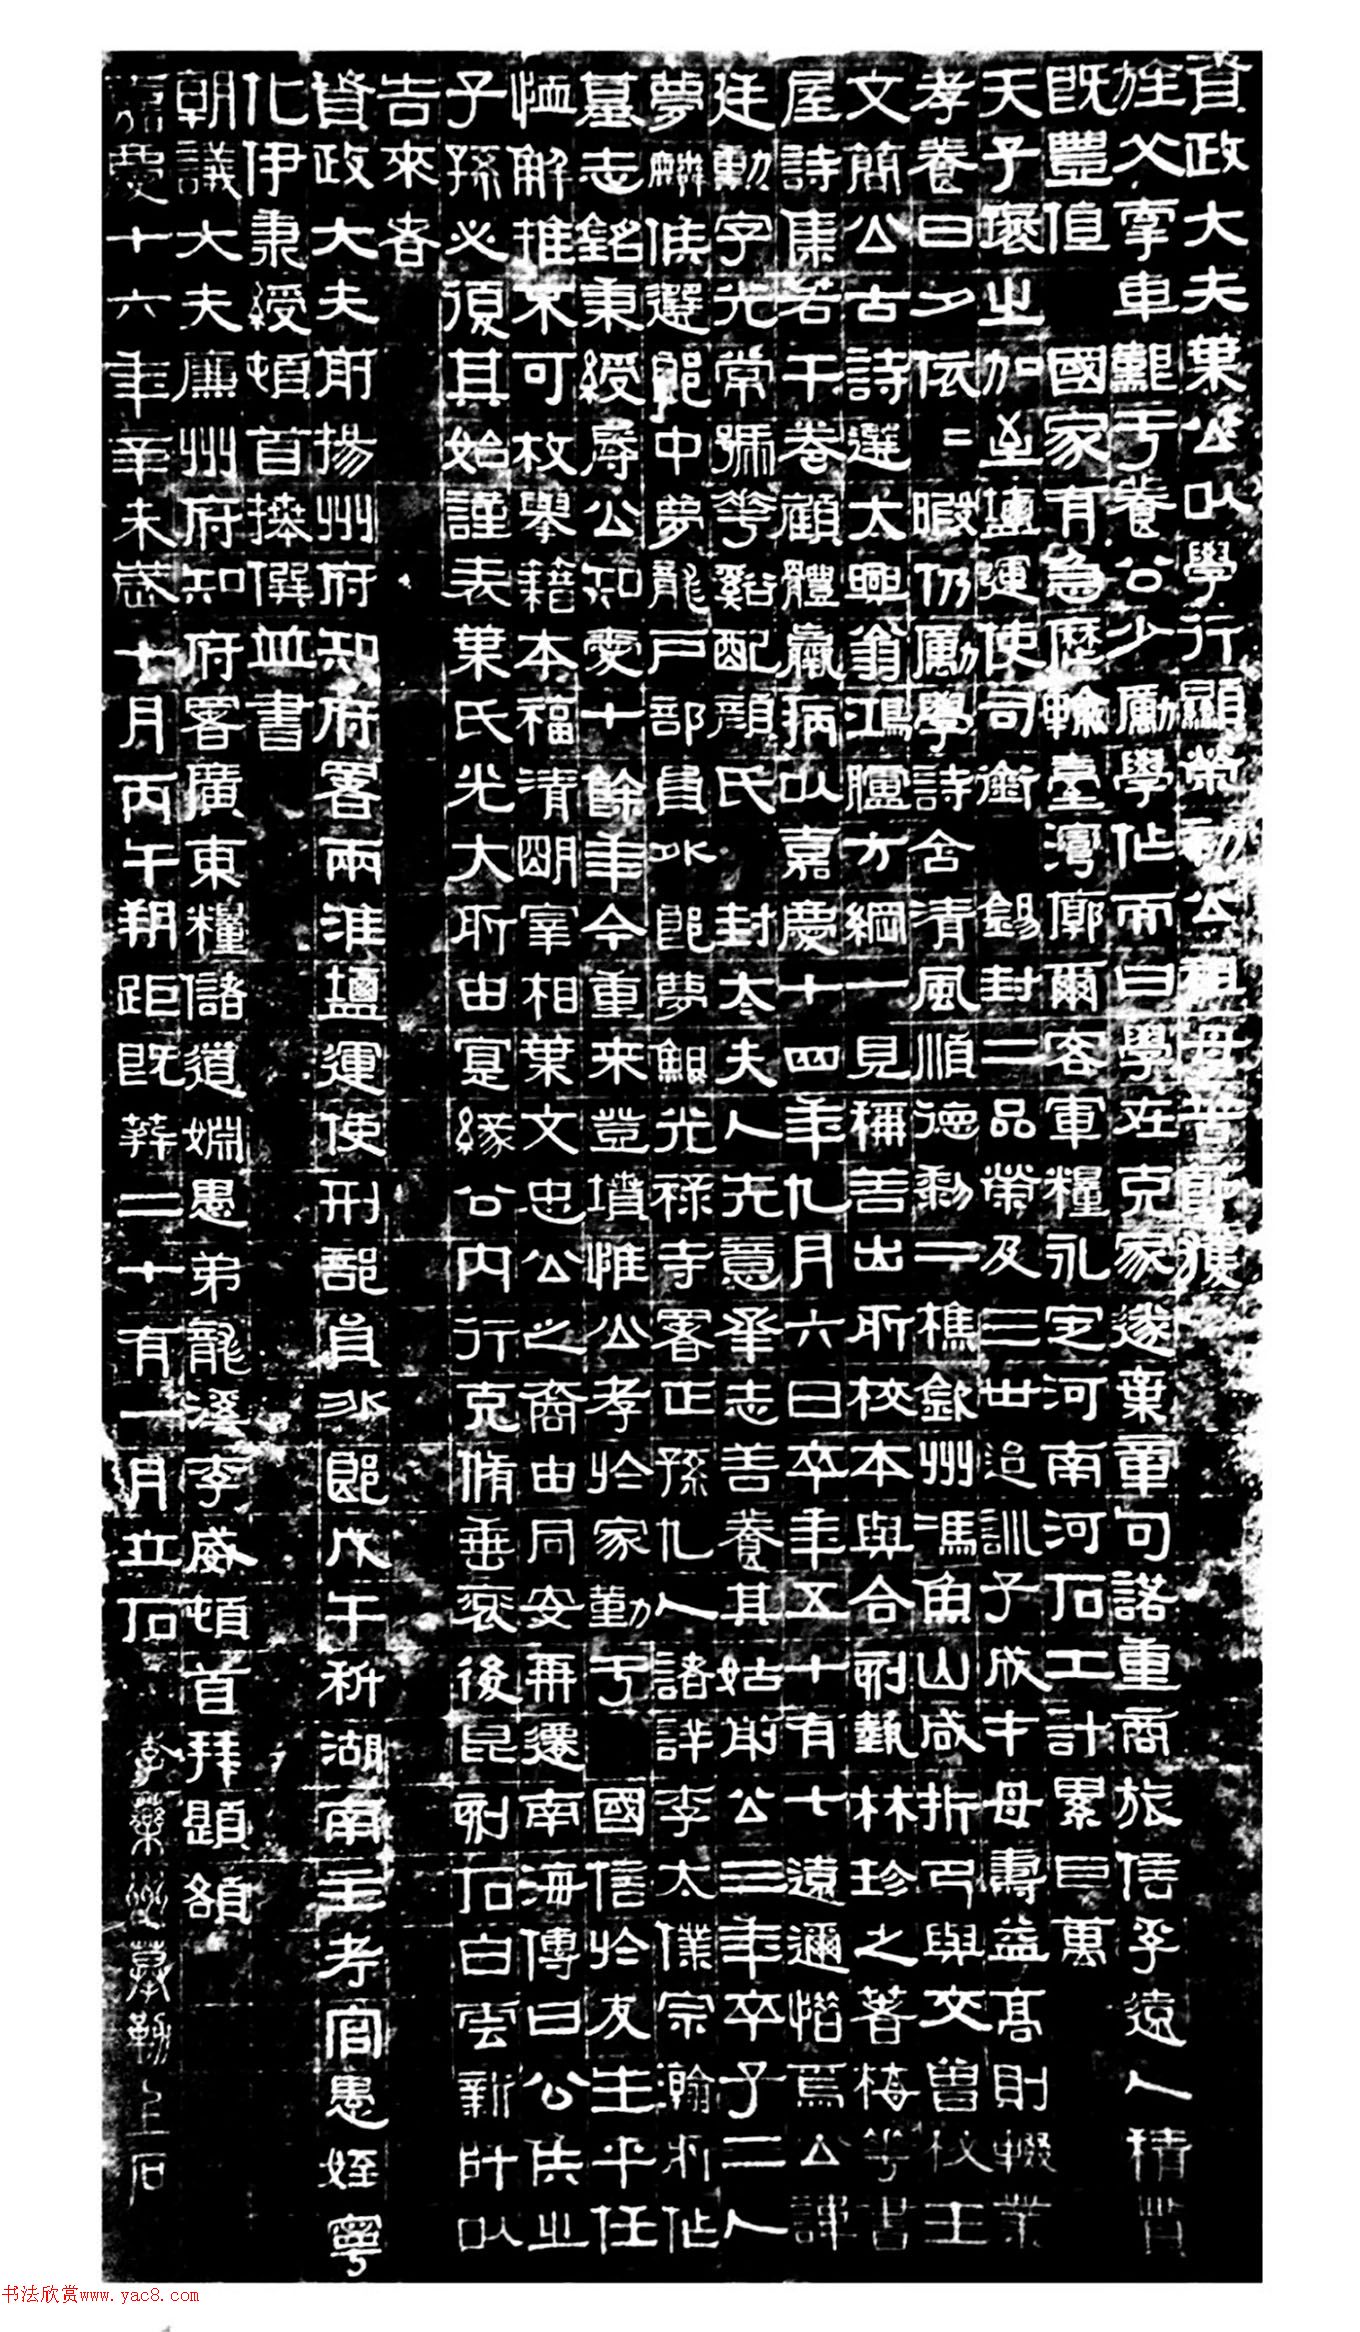 資政大夫葉公以學行顯榮初公祖母普節獲
旌父掌車艱于養公少勵學作而曰學在克家遂棄章句諾重商旅信孚遠人積
既豐值 國家有急歷輸臺灣廓爾客軍糧永定河南河石工計累巨萬
天子褒之加至鹽運使司銜 錫封二品榮及三世迨訓子成中母壽益高則輟業
孝養日夕依二暇仍勵學詩含清風順德黎二樵歙州馮魚山咸折服與交曾校王
文簡公古詩選大興翁鴻臚方綱一見稱善出所校本與合刻藝林珍之著梅華書
屋詩集若干卷顧體羸病以嘉慶十四年九月六日卒年五十有七遠邇惜焉公諱
廷勳字光常號花谿配顏氏 封太夫人先意承志善養其姑前公三年卒子二人
夢麟候選郎中夢龍戶部員外郎夢鯤光祿寺署正孫九人諸詳李太僕宗瀚所作
墓志銘秉綬辱公知愛十餘年今重來登墳惟公孝於家勤于 國信於友生平任
恤解推不可枚舉籍本福清明宰相葉文忠公之裔由同安再遷南海傳曰公侯之
子孫必復其始謹表葉氏光大所由寔緣公內行克脩垂裕後昆刻石白雲新阡以
告來者
資政大夫前揚州府知府署兩淮鹽運使刑部員外郎戊午科湖南主考官愚姪寧
化伊秉綬頓首撰并書
朝議大夫廉州府知府署廣東糧儲道姻愚弟龍溪李威頓首拜題額
嘉慶十六年辛未歲十月丙午朔距既葬二十有一月立石 李藥洲摹勒上石
书法欣赏www.yac8.com